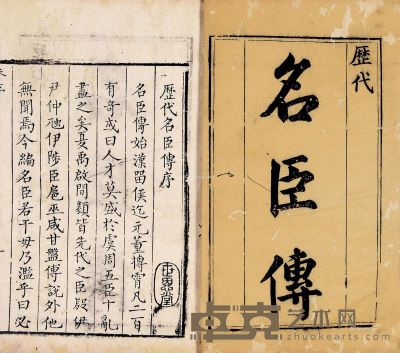 歷代
名臣傳
歷代名臣傳序
名臣傳始漢留侯迄元董摶霄凡二百
有奇或曰人才莫盛於虞周五臣十亂
盡之矣夏禹啟間類皆先代之臣殷伊
尹仲虺伊陟臣扈巫咸甘盤傅說外他
無聞焉今編名臣若干毋乃濫乎曰必
卓克艺术网
zhuokearts.com